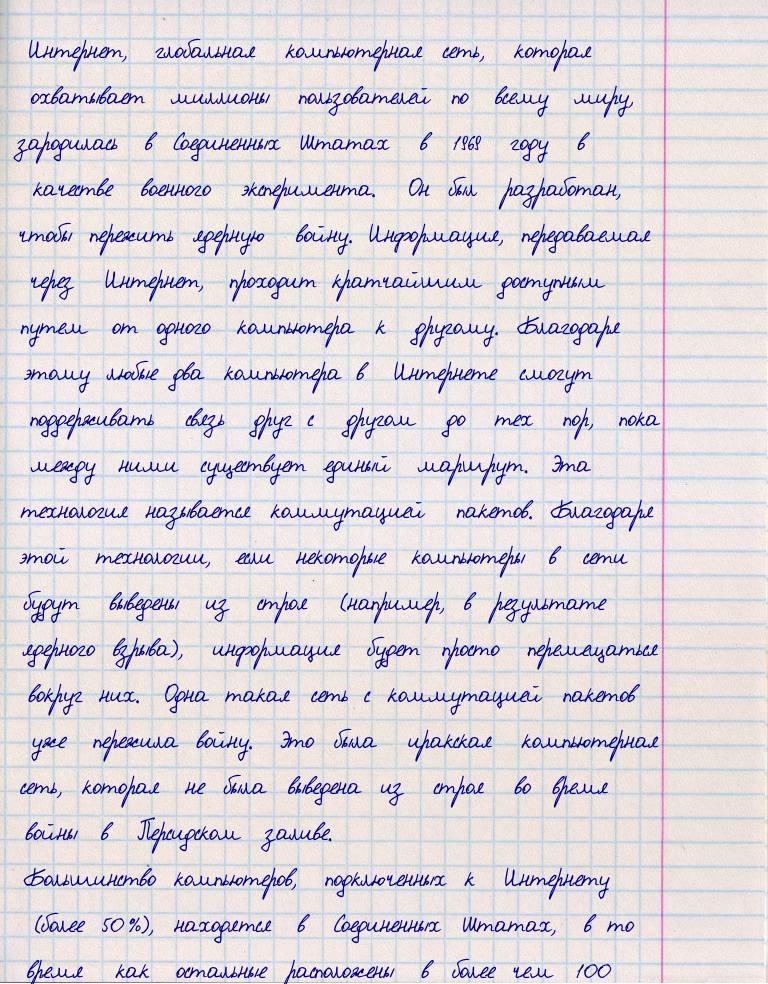 Интернет, глобальная компьютерная сеть, которая
охватывает миллионы пользователей по всему миру,
зародилась в Соединенных Штатах в 1969 году в
качестве военного эксперимента. Он был разработан,
чтобы пережить ядерную войну. Информация, передаваемая
через Интернет, проходит кратчайшим доступным
путем от одного компьютера к другому. Благодаря
этому любые два компьютера в Интернете смогут
поддерживать связь друг с другом до тех пор, пока
между ними существует единый маршрут. Эта
технология называется коммутацией пакетов. Благодаря
этой технологии, если некоторые компьютеры в сети
будут выведены из строя (например, в результате
ядерного взрыва), информация будет просто перемещаться
вокруг них. Одна такая сеть с коммутацией пакетов
уже пережила войну. Это была иракская компьютерная
сеть, которая не была выведена из строя во время
войны в Персидском заливе.
Большинство компьютеров, подключенных к Интернету
(более 50%), находятся в Соединенных Штатах, в то
время как остальные расположены в более чем 100